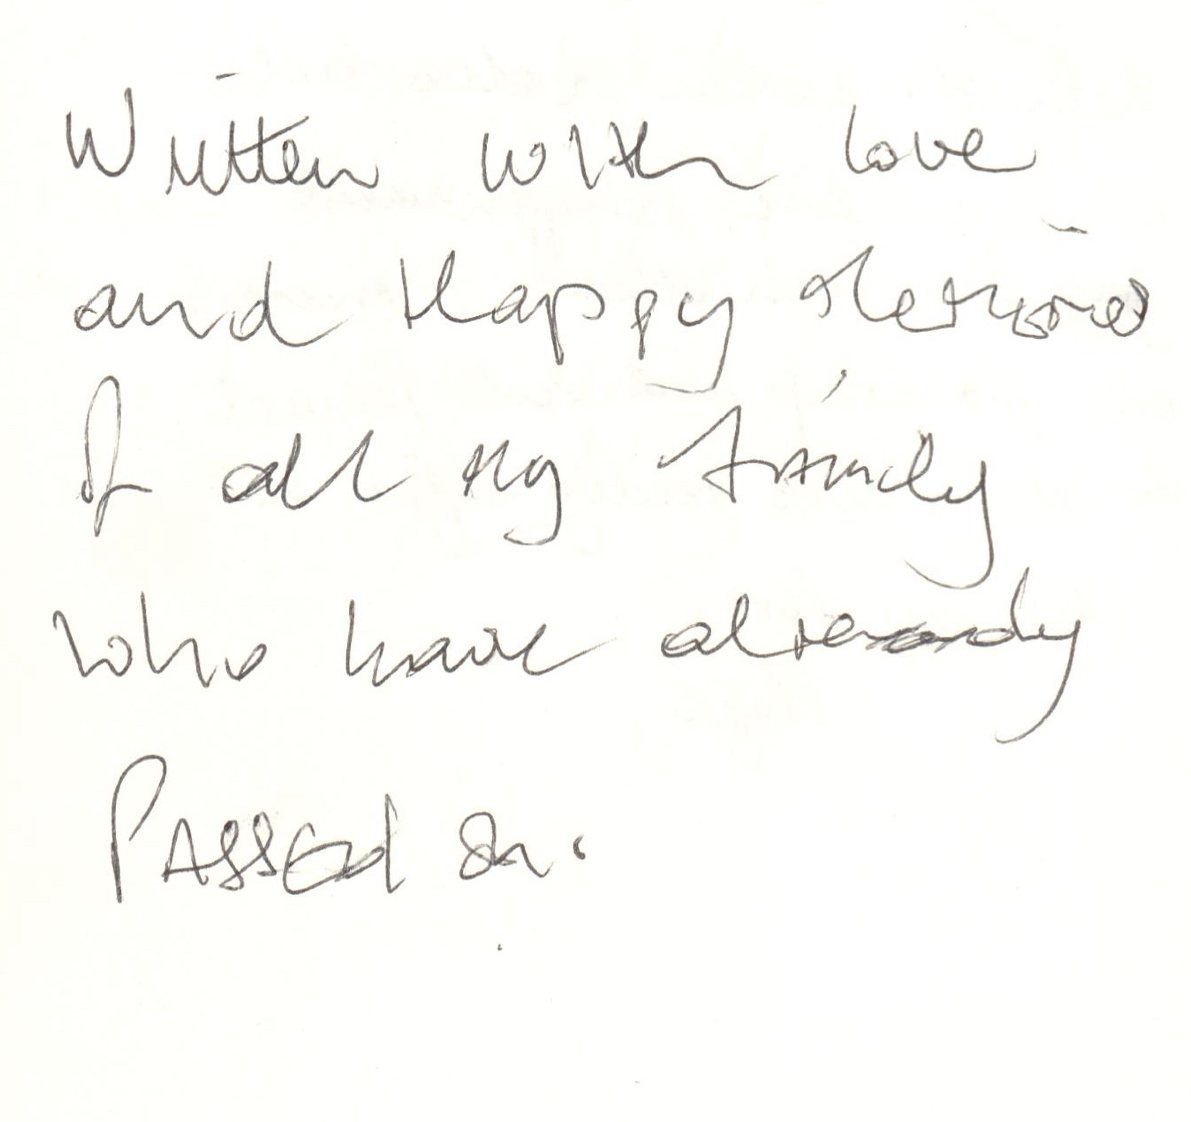 Written with love
and Happy Memories
of all my family
who have already
Passed on.